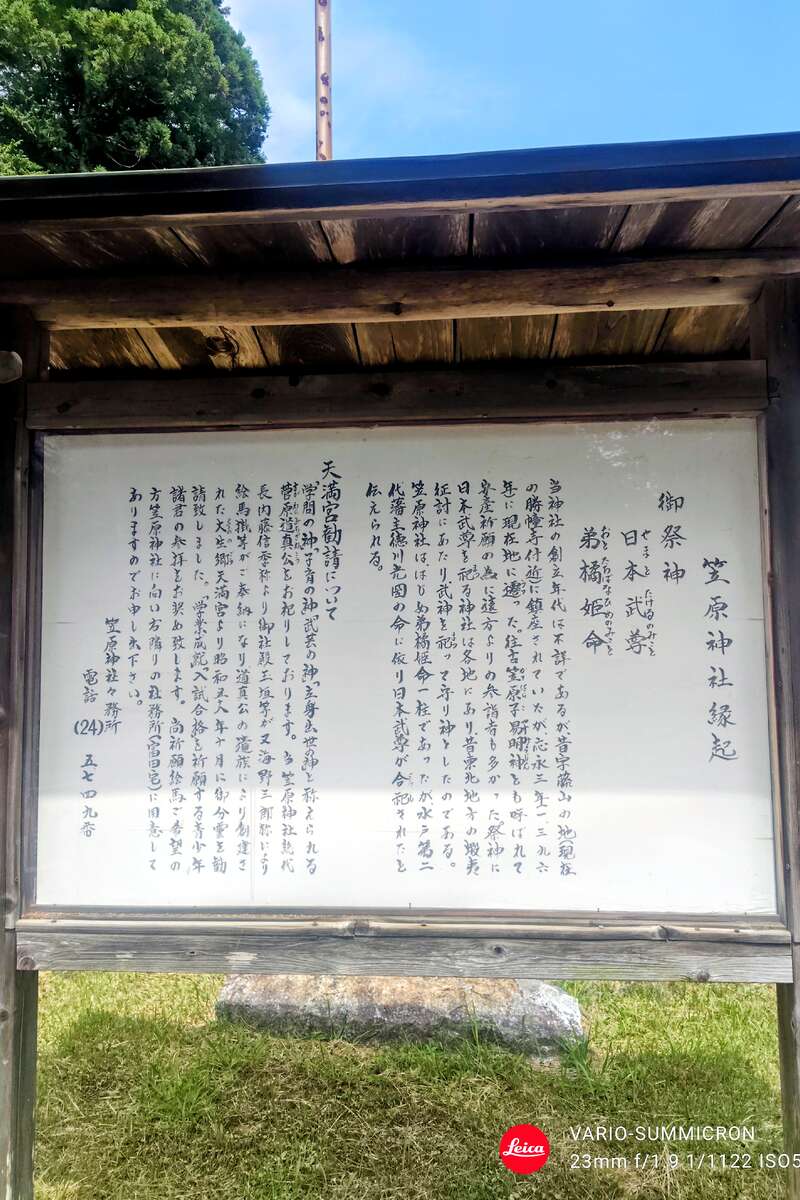 笠原神社縁起
御祭神
日本武尊
やまとたけるのみこと
弟橘姫命
おとたちばなひめのみこと
当神社の創立年代は不詳であるが昔字藤山の地(現在
の勝幢寺付近に鎮座されていたが応永三年一三九六
年に現在地に遷った。往古笠原子易明神とも呼ばれて
安産祈願の為に遠方よりの参詣者も多かった祭神に
日本武尊を祀る神社は各地にあり昔東北地方の蝦夷
征討にあたり武神を祀って守り神としたのである。
笠原神社は、はじめ弟橘姫命一柱であったが、水戸第二
代藩主徳川光圀の命に依り日本武尊が合祀されたと
伝えられる。
天満宮勧請について
「学問の神」「子育の神」「武芸の神」「立身出世の神」と称えられる
菅原道真公をお祀りしております。当笠原神社総代
長内藤信季称より御社殿玉垣等が又海野三郎称により
絵馬掛等がご奉納になり道真公の遺族により創建さ
れた大生郷天満宮より昭和五八年十月に御分霊を勧
請致しました。「学業成就」「入試合格」を祈願する青少年
諸君の参拝をお奨め致します。尚祈願絵馬ご希望の
方笠原神社に向い右隣りの社務所(宮田宅)に用意して
ありますのでお申し出下さい。
笠原神社々務所
電話 (24) 五七四九番
Leica
VARIO-SUMMICRON
23mm f/1.9 1/1122 ISO5